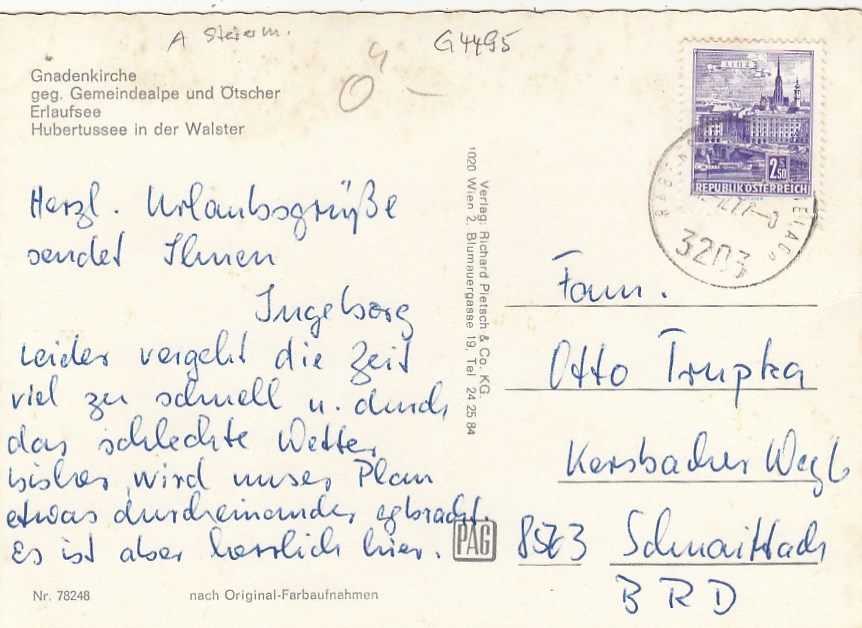 A Steierm.
G4495
Gnadenkirche
geg. Gemeindealpe und Ötscher
Erlaufsee
Hubertussee in der Walster
LINZ
2.50
REPUBLIK ÖSTERREICH
3203
Herzl. Urlaubsgrüße
sendet Ihnen
Ingeborg
Leider vergeht die Zeit
viel zu schnell u. durch
das schlechte Wetter
bisher wird unser Plan
etwas durcheinander egbracht.
Es ist aber herrlich hier.
Verlag: Richard Pietsch & Co. KG.
1020 Wien 2, Blumauergasse 19, Tel. 24 25 84
PAG
Fam.
Otto Trupka
Kersbacher Weg 6
8563 Schnaittach
BRD
Nr. 78248
nach Original-Farbaufnahmen